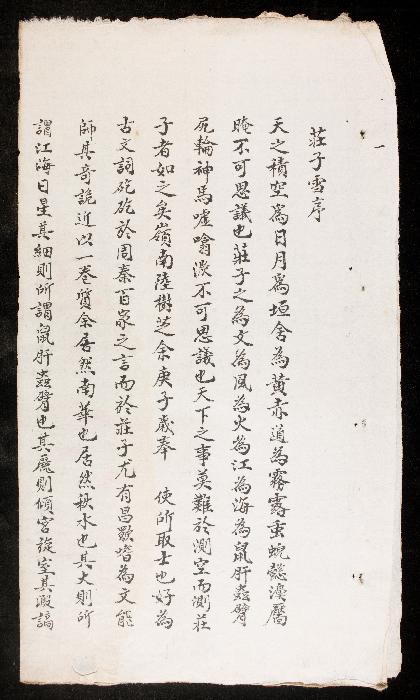 莊子雪序
天之積空為日月為垣舍為黃赤道為霧露虫蜺懿濛曀
晻不可思議也莊子之為文為風為火為江為海為鼠肝蟲臂
尻輪神馬噓噏激不可思議也天下之事莫難於測空而測莊
子者如之矣嶺南陸樹芝余庚子歲奉 使所取士也好為
古文詞矻矻於周秦百家之言而於莊子尤有昌歜嗜為文能
師其奇詭近以一卷質余居然南華也居然秋水也其大則所
謂江海日星其細則所謂鼠肝蟲臂也其麗則傾宮旋室其瑕謫